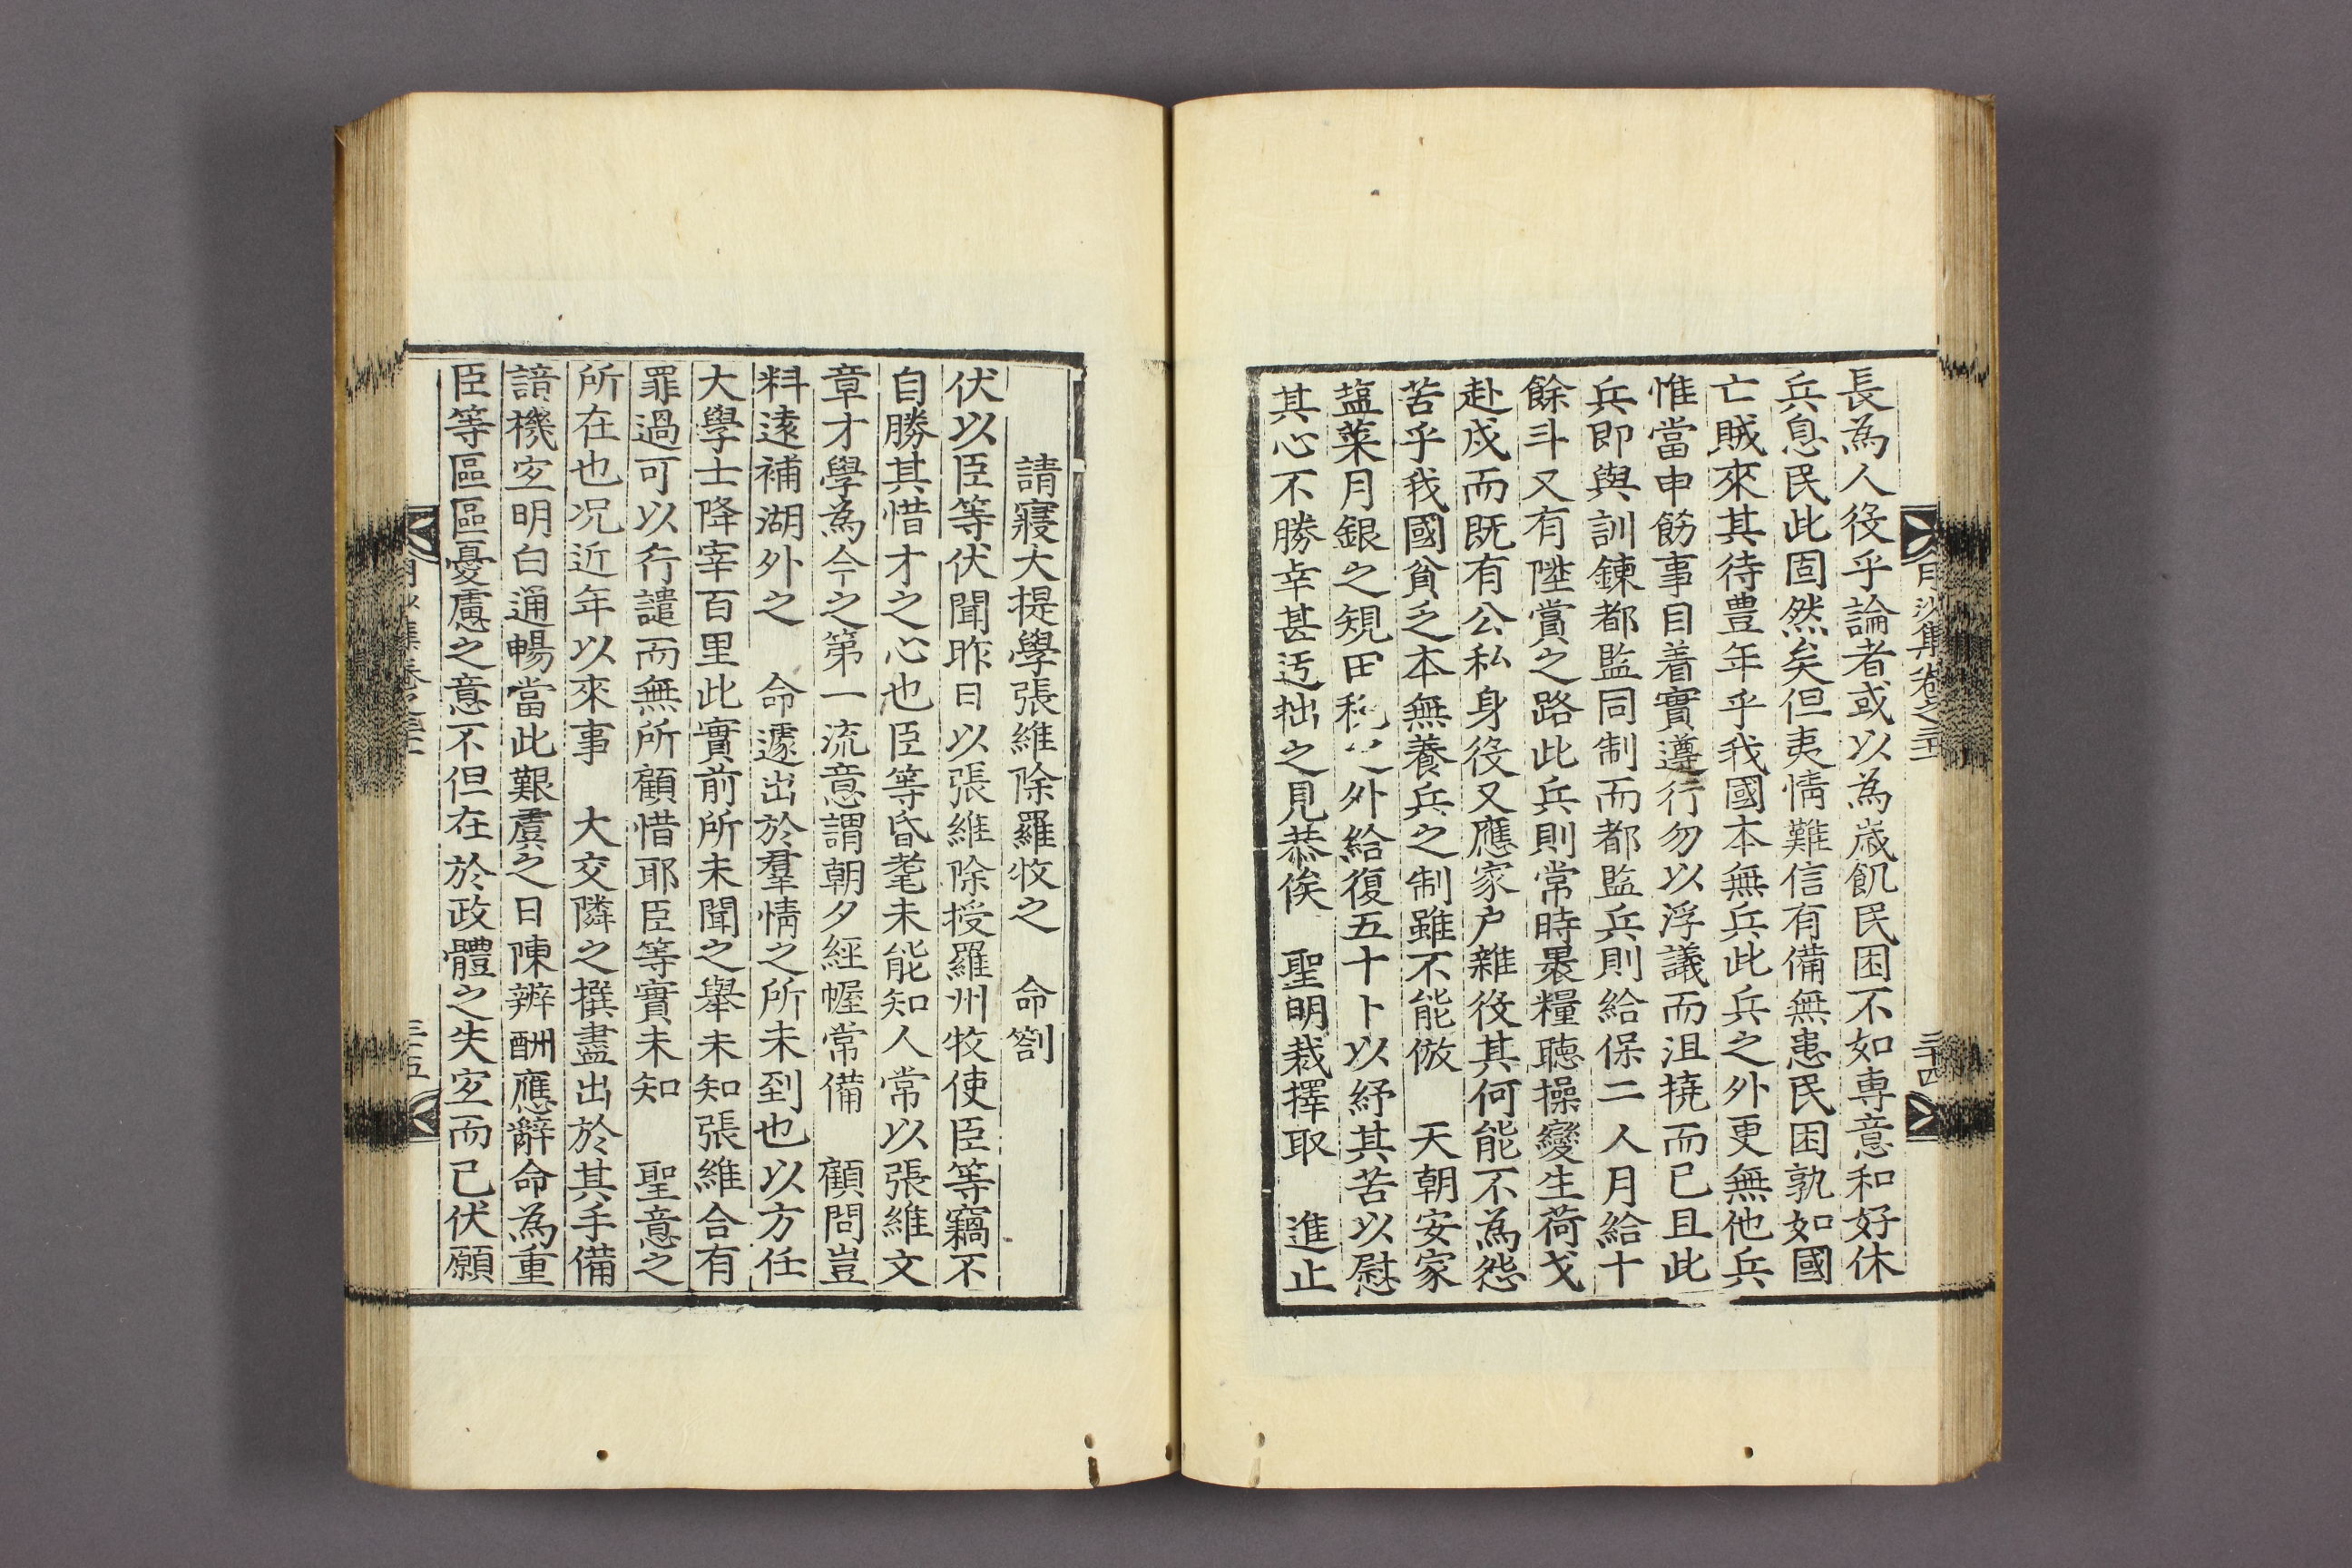 長為人役乎論者或以為歲飢民困不如專意和好休
兵息民此固然矣但夷情難信有備無患民困孰如國
亡賊來其待豊年乎我國本無兵此兵之外更無他兵
惟當申飭事目着實遵行勿以浮議而沮撓而已且此
兵即與訓鍊都監同制而都監兵則給保二人月給十
餘斗又有陞賞之路此兵則常時褁糧聽操變生荷戈
赴戍而既有公私身役又應家户雜役其何能不為怨
苦乎我國貧乏本無養兵之制雖不能倣 天朝安家
塩菜月銀之規田稅之外給復五十卜以紓其苦以慰
其心不勝幸甚迃拙之見恭俟 聖明裁擇取 進止
月沙集卷之三十
三十四
請寢大提學張維除羅牧之 命劄
伏以臣等伏聞昨日以張維除授羅州牧使臣等竊不
自勝其惜才之心也臣等昏耄未能知人常以張維文
章才學為今之第一流意謂朝夕經幄常備 顧問豈
料遠補湖外之 命遽出於羣情之所未到也以方任
大學士降宰百里此實前所未聞之舉未知張維合有
罪過可以行譴而無所顧惜耶臣等實未知 聖意之
所在也况近年以來事 大交隣之撰盡出於其手備
諳機宜明白通暢當此艱虞之日陳辨酬應辭命為重
臣等區區憂慮之意不但在於政體之失宜而已伏願
集卷之三十
三十五